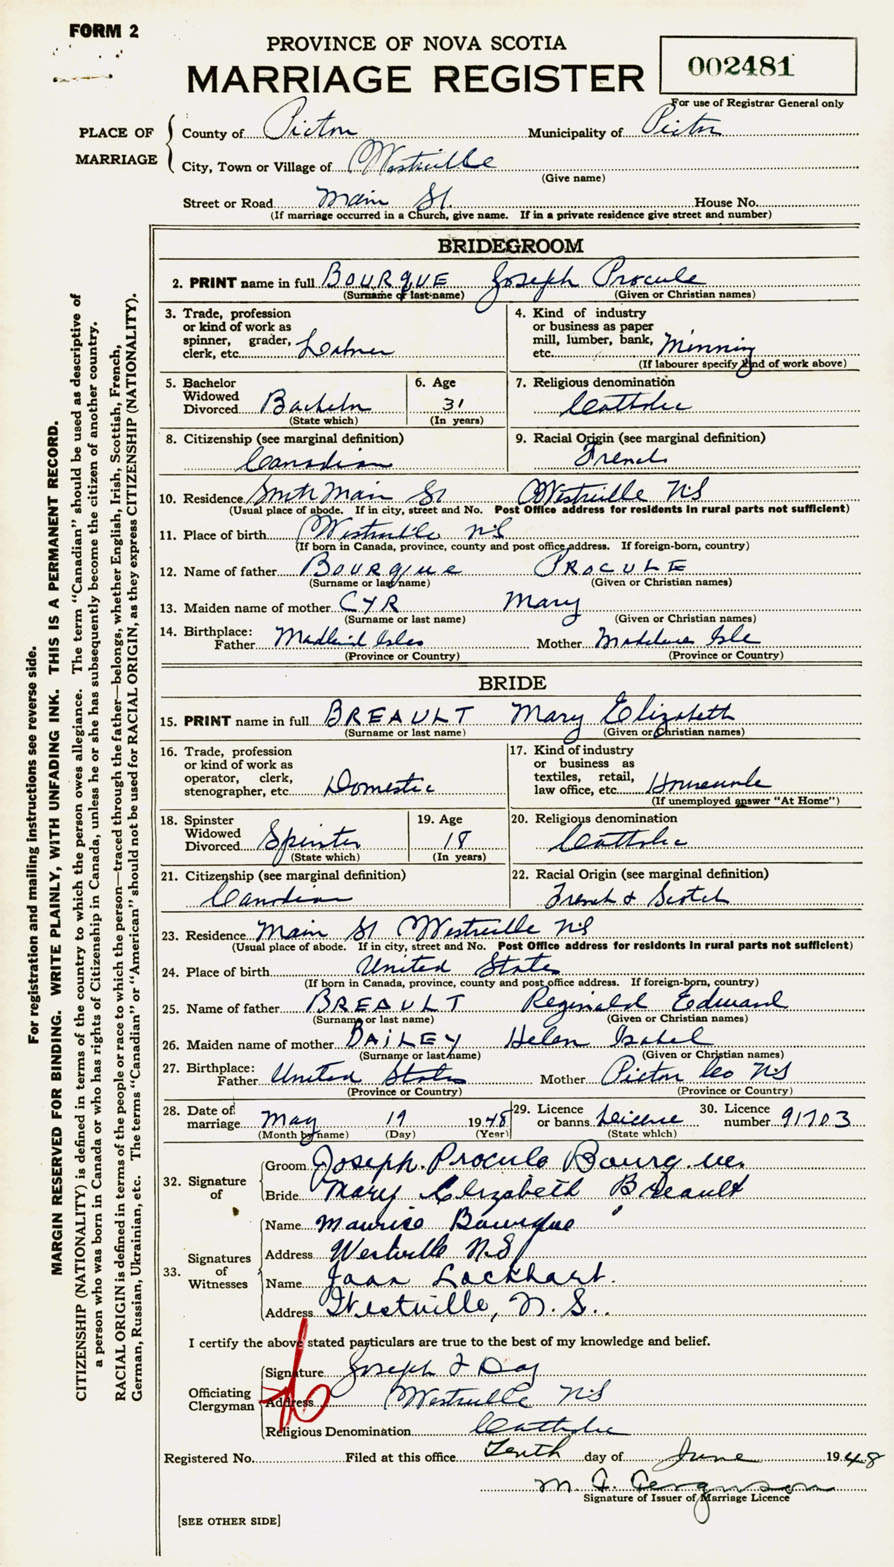 FORM 2
PROVINCE OF NOVA SCOTIA
MARRIAGE REGISTER
002481
For use of Registrar General only
PLACE OF MARRIAGE
County of Pictou Municipality of Pictou
City, Town or Village of Westville
(Give name)
Street or Road Main St. House No.
(If marriage occurred in a Church, give name. If in a private residence give street and number)
BRIDEGROOM
2. PRINT name in full BOURQUE Joseph Procule
(Surname or last name) (Given or Christian names)
3. Trade, profession or kind of work as spinner, grader, clerk, etc.
4. Kind of industry or business as paper mill, lumber, bank, etc. Minning
(If labourer specify kind of work above)
5. Bachelor Widowed Divorced Bachelor
(State which)
6. Age 31
(In years)
7. Religious denomination Catholic
8. Citizenship (see marginal definition)
Canadian
9. Racial Origin (see marginal definition)
French
10. Residence Main St Westville NS
(Usual place of abode. If in city, street and No. Post Office address for residents in rural parts not sufficient)
11. Place of birth Westville NS
(If born in Canada, province, county and post office address. If foreign-born, country)
12. Name of father Bourque PROCULE
(Surname or last name) (Given or Christian names)
13. Maiden name of mother CYR Mary
(Surname or last name) (Given or Christian names)
14. Birthplace:
Father Mother
(Province or Country) (Province or Country)
BRIDE
15. PRINT name in full BREAULT Mary Elizabeth
(Surname or last name) (Given or Christian names)
16. Trade, profession or kind of work as operator, clerk, stenographer, etc. Domestic
17. Kind of industry or business as textiles, retail, law office, etc. Housework
(If unemployed answer "At Home")
18. Spinster Widowed Divorced Spinster
(State which)
19. Age 18
(In years)
20. Religious denomination
Catholic
21. Citizenship (see marginal definition)
Canadian
22. Racial Origin (see marginal definition)
French & Scotch
23. Residence Main St Westville NS
(Usual place of abode. If in city, street and No. Post Office address for residents in rural parts not sufficient)
24. Place of birth United States
(If born in Canada, province, county and post office address. If foreign-born, country)
25. Name of father BREAULT Reginald Edward
(Surname or last name) (Given or Christian names)
26. Maiden name of mother BAILEY Helen Isabel
(Surname or last name) (Given or Christian names)
27. Birthplace:
Father United States Mother Pictou Co NS
(Province or Country) (Province or Country)
28. Date of marriage May 19 1948
(Month by name) (Day) (Year)
29. Licence or banns Licence
(State which)
30. Licence number 91703
32. Signature of
Groom Joseph Procule Bourque.
Bride Mary Elizabeth Breault
33. Signatures of Witnesses
Name Maurice Bourque
Address Westville N.S
Name Joan Lockhart.
Address Westville, N. S..
I certify the above stated particulars are true to the best of my knowledge and belief.
Officiating Clergyman
Signature Joseph Day
Address Westville NS
Religious Denomination Catholic
Registered No. Filed at this office Tenth day of June 1948
M. Ferguson
Signature of Issuer of Marriage Licence
[SEE OTHER SIDE]
For registration and mailing instructions see reverse side.
MARGIN RESERVED FOR BINDING. WRITE PLAINLY, WITH UNFADING INK. THIS IS A PERMANENT RECORD.
CITIZENSHIP (NATIONALITY) is defined in terms of the country to which the person owes allegiance. The term "Canadian" should be used as descriptive of
a person who was born in Canada or who has rights of Citizenship in Canada, unless he or she has subsequently become the citizen of another country.
RACIAL ORIGIN is defined in terms of the people or race to which the person—traced through the father—belongs, whether English, Irish, Scottish, French,
German, Russian, Ukrainian, etc. The terms "Canadian" or "American" should not be used for RACIAL ORIGIN, as they express CITIZENSHIP (NATIONALITY).